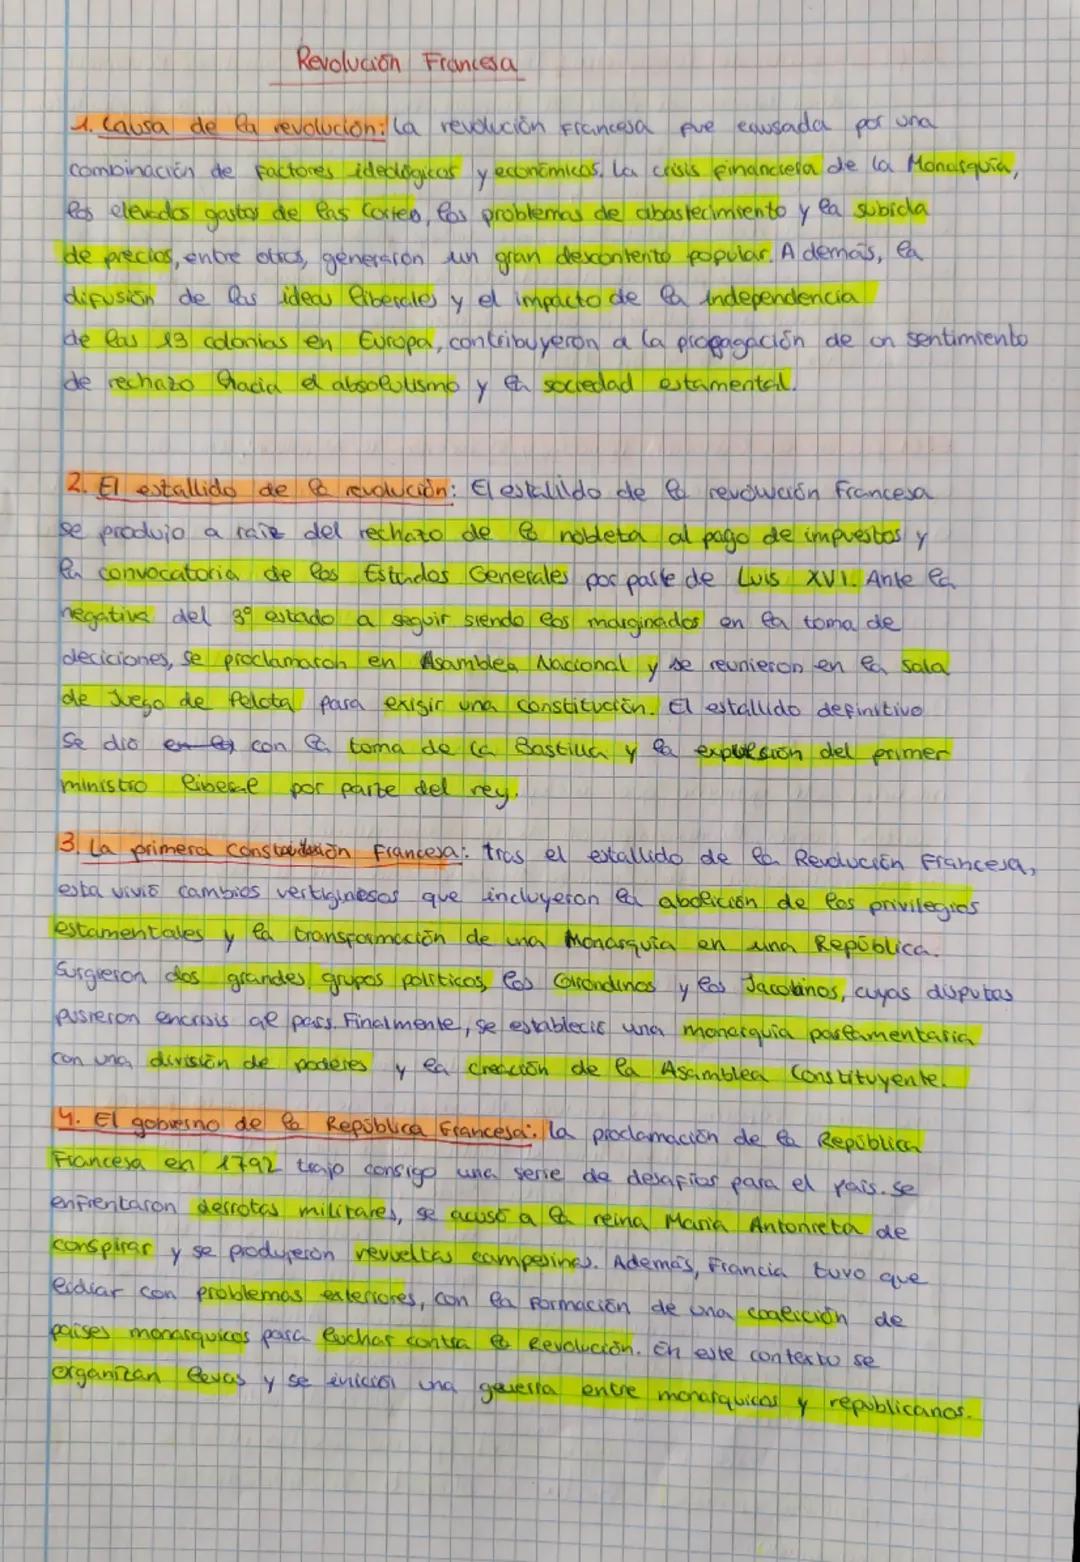 Revolución Francesa
1. Causa de la revolución: La revolución Francesa fue causada por una
combinación de factores ideológicos y económicos. La crisis financiera de la Monarquía,
los elevados gastos de las Cortes, los problemas de abastecimiento y la subida
de precios, entre otros, generarón un gran descontento popular. Además, la
difusión de las ideas liberales y el impacto de la independencia
de las 13 colonias en Europa, contribuyeron a la propagación de un sentimiento
de rechazo hacia el absolutismo y la sociedad estamental.
2. El estallido de la revolución: El estalildo de la revolución Francesa
se produjo a raiz del rechazo de la nobleza al pago de impuestos y
la convocatoria de los Estados Generales por parte de Luis XVI. Ante la
negativa del 3º estado a seguir siendo los marginados en la toma de
deciciones, se proclamaron en Asamblea Nacional y se reunieron en la sala
de Juego de Pelota para exigir una constitución. El estallido definitivo
se dió con la toma de la Bastilla y la expulsión del primer
ministro liberal por parte del rey.
3. La primera Francesa: tras el estallido de la Revolución Francesa,
esta vivió cambios vertiginosos que incluyeron la abolición de los privilegios
estamentales y la transformación de una Monarquía en una República.
Surgieron dos grandes grupos políticos, los Girondinos y los Jacobinos, cuyas disputas
pusieron en crisis al país. Finalmente, se estableció una monarquía parlamentaria
con una división de poderes y la creación de la Asamblea Constituyente.
4. El gobierno de la República Francesa: la proclamación de la República
Francesa en 1792 trajo consigo una serie de desafíos para el país. se
enfrentaron derrotas militares, se acusó a la reina Maria Antonieta de
conspirar y se produjeron revueltas campesinas. Además, Francia tuvo que
lidiar con problemas exteriores, con la formación de una coalición de
países monarquicos para luchar contra la Revolución. En este contexto se
organizan levas y se inició una guerra entre monarquicos y republicanos.